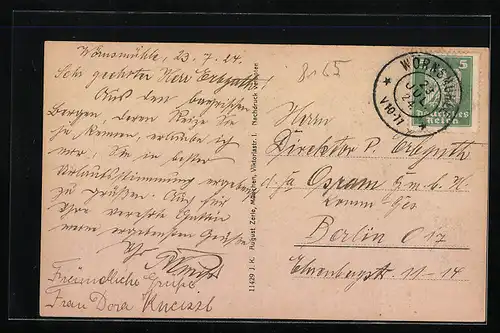 Wörnsmühle, 23.7.24
Sehr geehrter Herr Erbguth!
Aus den bayrischen
Bergen, deren Reize Sie
ja kennen, erlaube ich
mir, Sie in bester
Urlaubsstimmung ergebenst
zu grüßen. Auch für
Ihre verehrte Gattin
meine ergebensten Grüße
Ihr
Freundliche Grüße
Frau Dora
11429 J. K. August Zerle, München, Viktoriastr. 1 Nachdruck verboten
8165
WÖRNSMÜHLE
23
JUL
24
V10-11
5
Deutsches
Reich
Herrn
Direktor P. Erbguth
d. fa Osram G.m.b.H.
Komm. Ges
Berlin O 17
Ehrenbergstr. 11-14